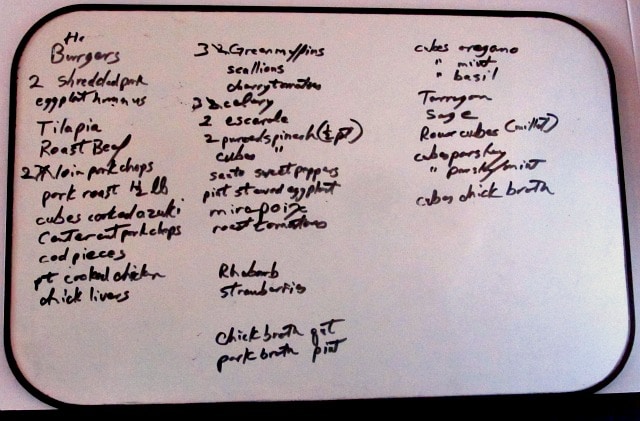 Burgers
2 shredded pork
eggplant humus
Tilapia
Roast Beef
2 loin pork chops
pork roast 1/2 lb
cubes cooked azuki
Center cut pork chops
cod pieces
pt cooked chicken
chick livers
2 Green muffins
scallions
cherry tomatoes
celery
2 escarole
2 pureed spinach (1/2 pt)
cubes "
sauto sweet peppers
pint stewed eggplant
mirapoix
roast tomatoes
Rhubarb
strawberries
chick broth qt
pork broth pint
cubes oregano
" mint
" basil
Tarragon
Sage
cubes (millet)
cubes parsley
" parsley/mint
cubes chick broth